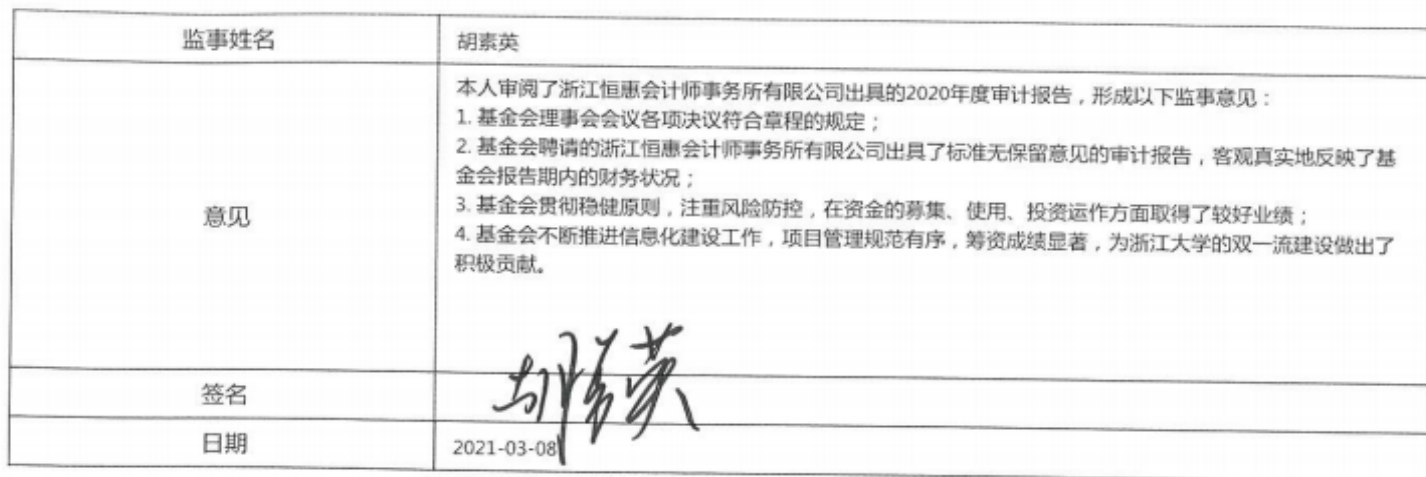 监事姓名
胡素英
意见
本人审阅了浙江恒惠会计师事务所有限公司出具的2020年度审计报告，形成以下监事意见：
1. 基金会理事会会议各项决议符合章程的规定；
2. 基金会聘请的浙江恒惠会计师事务所有限公司出具了标准无保留意见的审计报告，客观真实地反映了基
金会报告期内的财务状况；
3. 基金会贯彻稳健原则，注重风险防控，在资金的募集、使用、投资运作方面取得了较好业绩；
4. 基金会不断推进信息化建设工作，项目管理规范有序，筹资成绩显著，为浙江大学的双一流建设做出了
积极贡献。
签名
胡素英
日期
2021-03-08